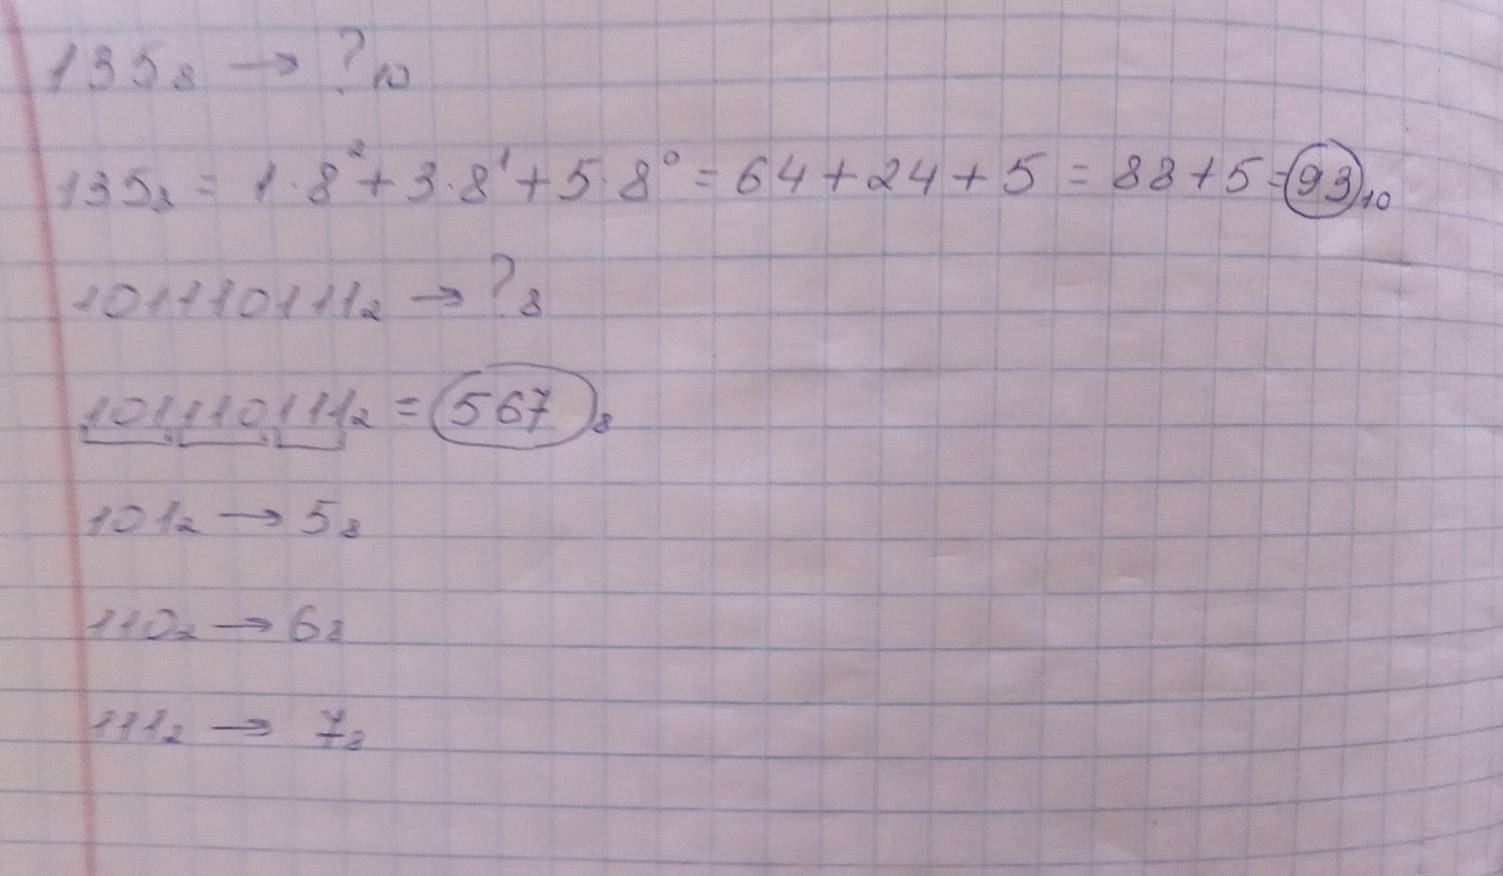 135₈ → ?₁₀
135₈ = 1·8² + 3·8¹ + 5·8⁰ = 64 + 24 + 5 = 88 + 5 = 93₁₀
101110111₂ → ?₈
101110111₂ = 567₈
101₂ → 5₈
110₂ → 6₈
111₂ → 7₈